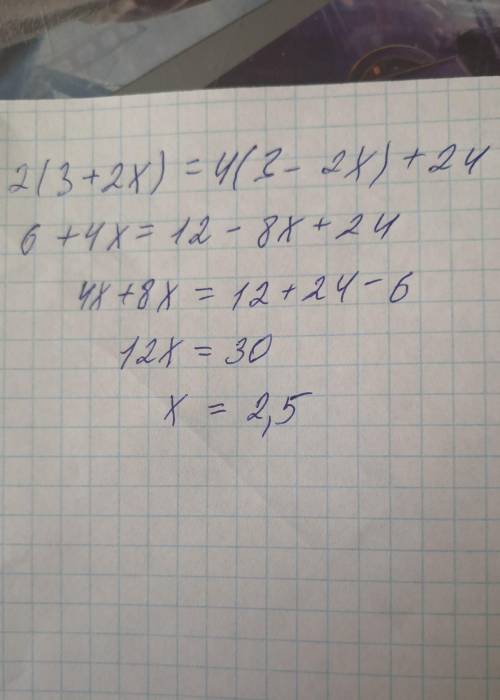 2(3+2x) = 4(3 - 2x) + 24
6 + 4x = 12 - 8x + 24
4x + 8x = 12 + 24 - 6
12x = 30
x = 2,5